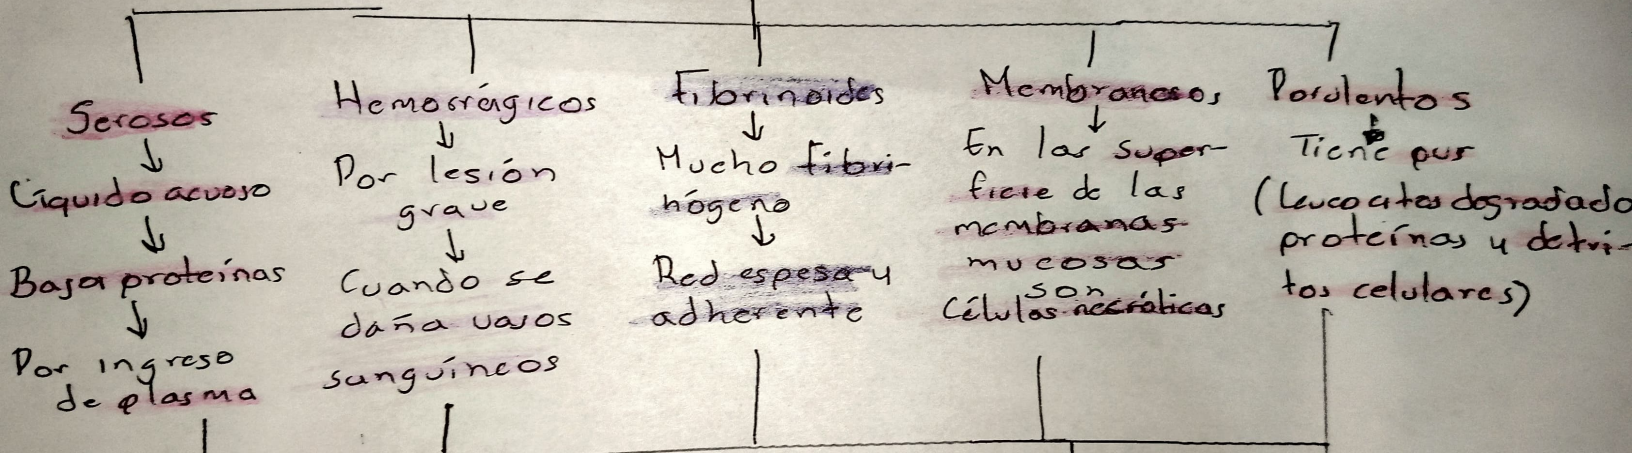 Serosos
↓
Líquido acuoso
↓
Baja proteínas
↓
Por ingreso
de plasma
Hemorrágicos
↓
Por lesión
grave
↓
Cuando se
daña vasos
sanguíneos
Fibrinoides
↓
Mucho fibri-
nógeno
↓
Red espesa y
adherente
Membranosos
↓
En las super-
ficie de las
membranas
mucosas
son
Células necróticas
Porulentos
↓
Tiene pus
(leucocitos degradado
proteínas y detri-
tos celulares)